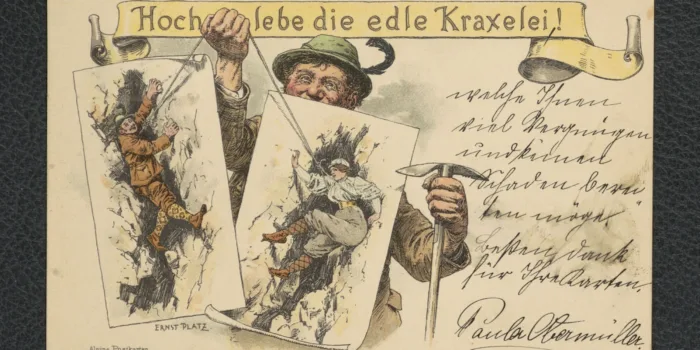 Hoch lebe die edle Kraxelei!
welche Ihnen
viel Vergnügen
und keinen
Schaden berei
ten möge.
Besten Dank
für Ihre Karten.
Paula Obermüller.
ERNST PLATZ